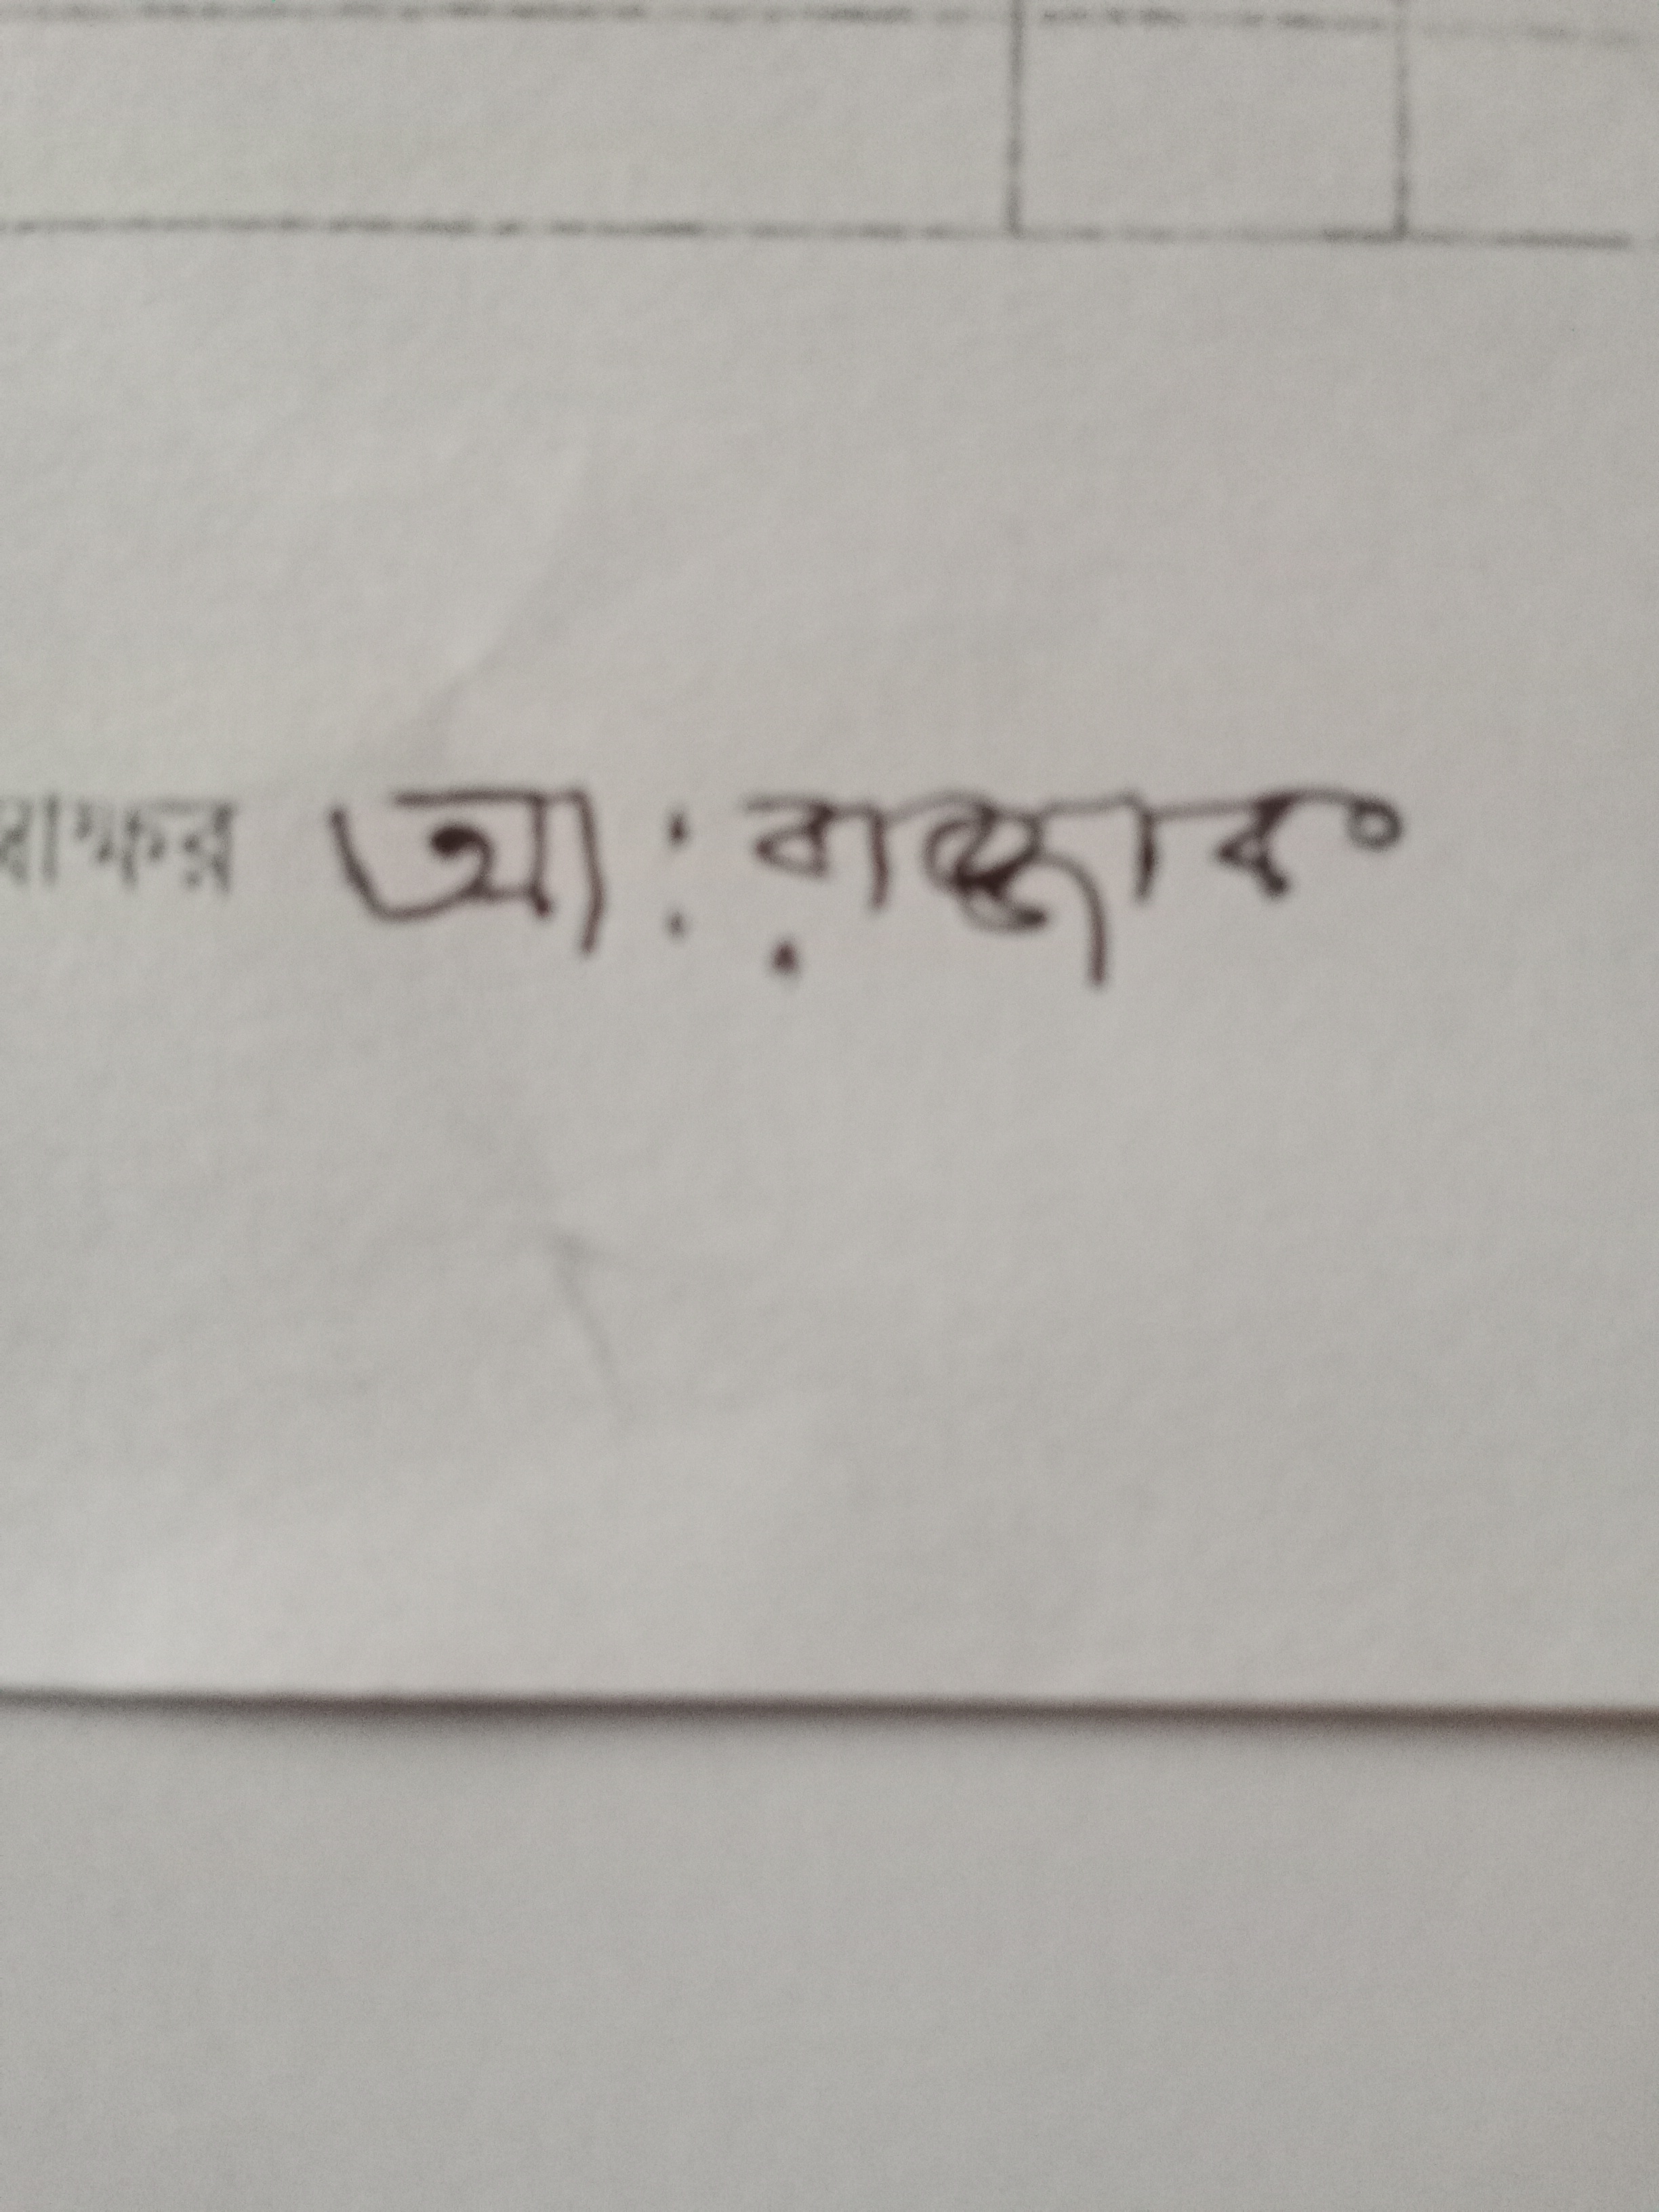 স্বাক্ষর আ: রাজ্জাক